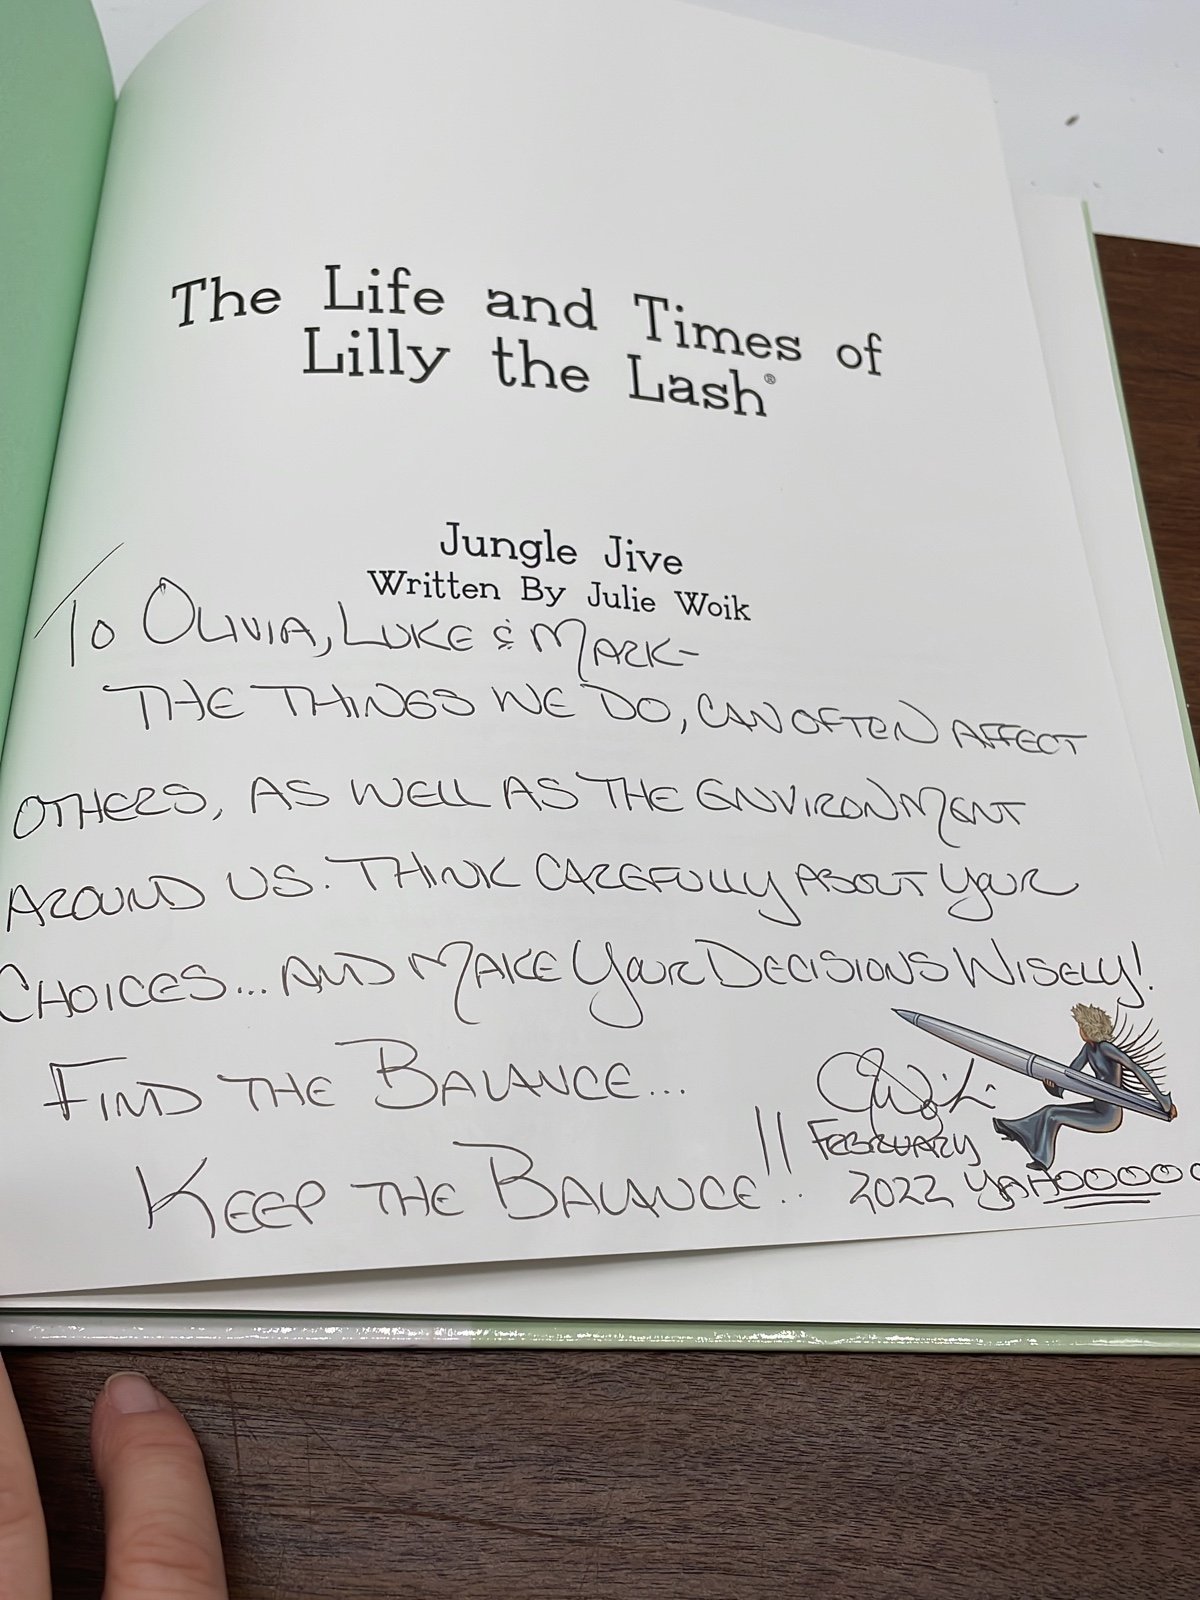 The Life and Times of
Lilly the Lash®
Jungle Jive
Written By Julie Woik
To OLIVIA, LUKE & MARK-
THE THINGS WE DO, CAN OFTEN AFFECT
OTHERS, AS WELL AS THE ENVIRONMENT
AROUND US. THINK CAREFULLY ABOUT YOUR
CHOICES... AND MAKE YOUR DECISIONS WISELY!
FIND THE BALANCE...
KEEP THE BALANCE!!
FEBRUARY
2022 YAHOOOOO